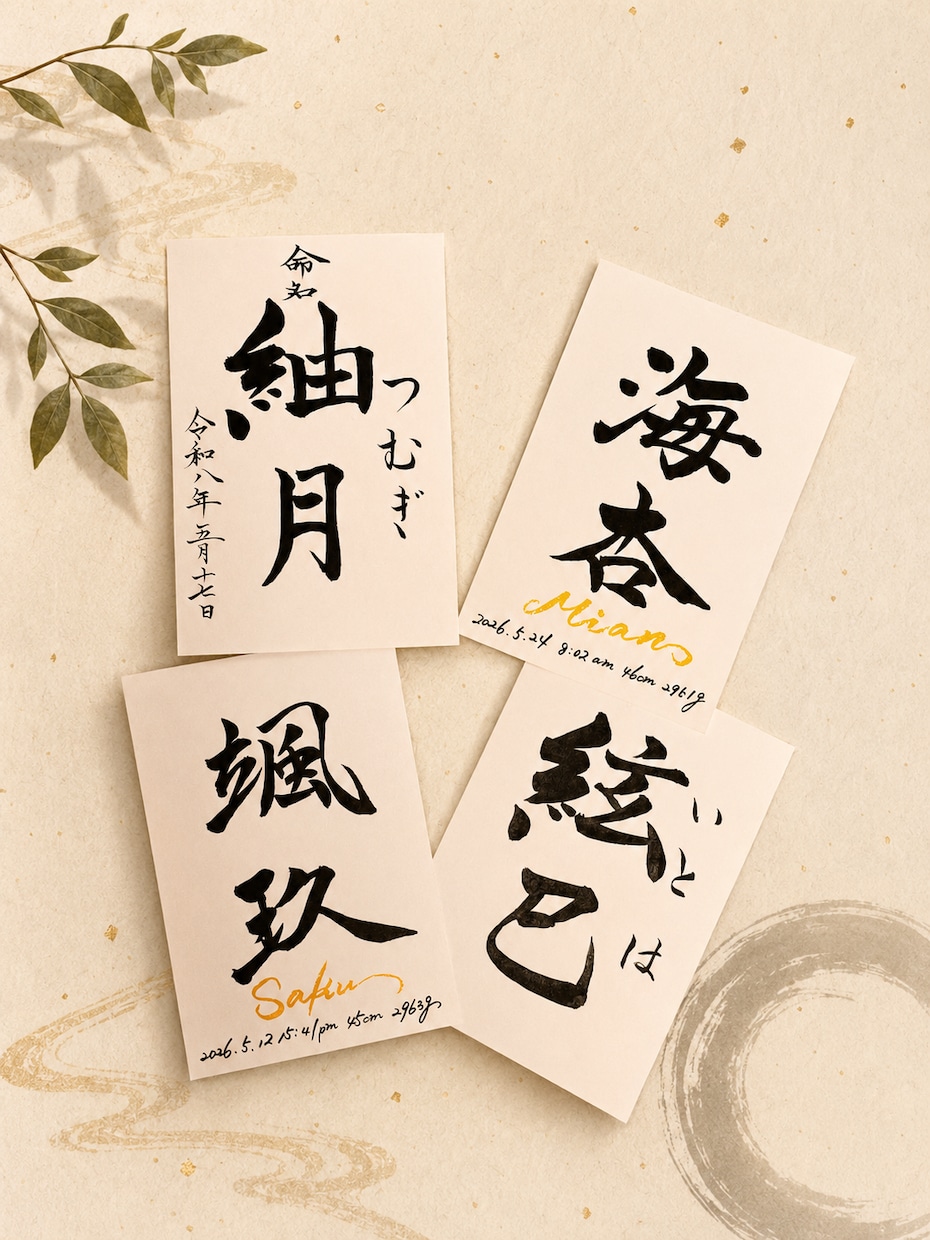 命名
紬月
つむぎ
令和八年五月十七日
海杏
Mian
2026.5.24 8:02am 46cm 2961g
颯玖
Saku
2026.5.12 15:41pm 45cm 2963g
絃巳
いとは